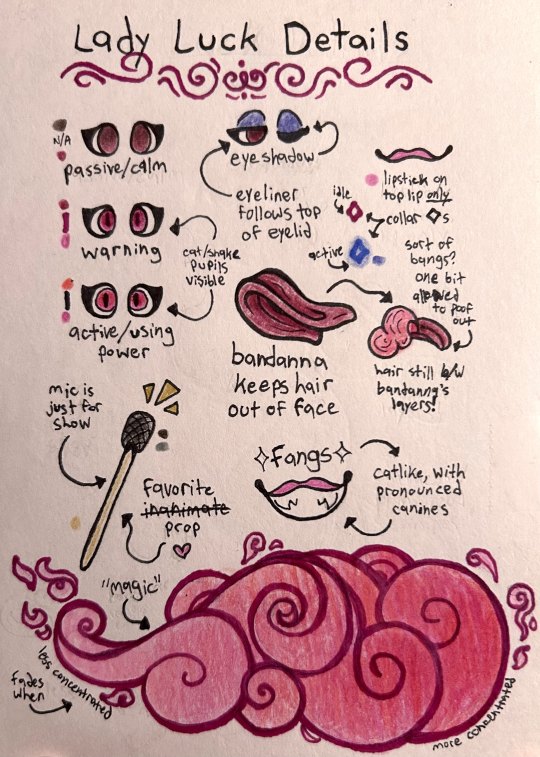 Lady Luck Details
N/A
passive/calm
eyeshadow
eyeliner
follows top
of eyelid
lipstick on
top lip only
idle
collar ◇s
active
warning
cat/snake
pupils
visible
active/using
power
sort of
bangs?
one bit
allowed
to poof
out
hair still b/w
bandanna's
layers!
bandanna
keeps hair
out of face
mic is
just for
show
favorite
inanimate
prop
Fangs
catlike, with
pronounced
canines
"magic"
fades
when
less concentrated
more concentrated